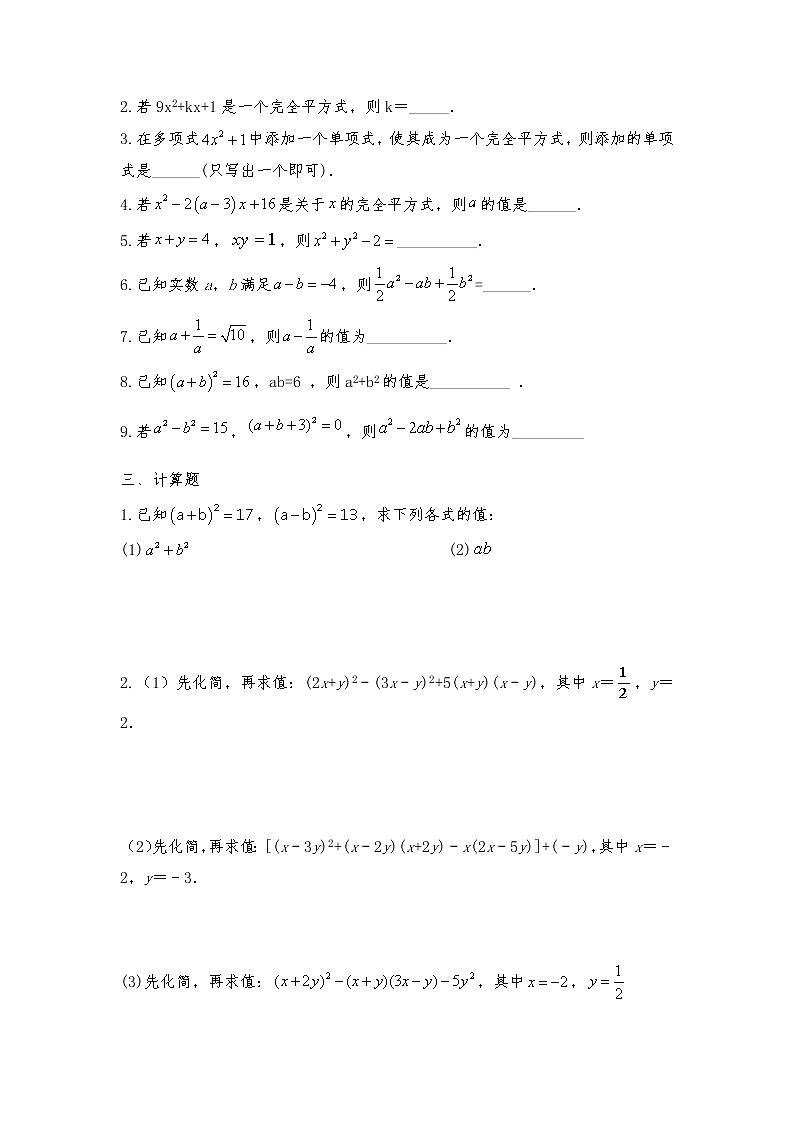 2.若 9x²+kx+1 是一个完全平方式，则 k＝_____.
3.在多项式4x²+1中添加一个单项式，使其成为一个完全平方式，则添加的单项
式是______(只写出一个即可).
4.若x²−2(a−3)x+16是关于x的完全平方式，则a的值是______.
5.若x+y=4，xy=1，则x²+y²−2=__________.
6.已知实数 a，b 满足a−b=−4，则1/2a²−ab+1/2b²=______.
7.已知a+1/a=√10，则a−1/a的值为__________.
8.已知(a+b)²=16，ab=6 ，则 a²+b²的值是__________ .
9.若a²−b²=15，(a+b+3)²=0，则a²−2ab+b²的值为_________
三、计算题
1.已知(a+b)²=17，(a−b)²=13，求下列各式的值：
(1)a²+b² (2)ab
2.（1）先化简，再求值：(2x+y)²﹣(3x﹣y)²+5(x+y)(x﹣y)，其中 x＝1/2，y＝
2.
（2）先化简，再求值：[(x﹣3y)²+(x﹣2y)(x+2y)﹣x(2x﹣5y)]+(﹣y)，其中 x＝﹣
2，y＝﹣3.
(3)先化简，再求值：(x+2y)²−(x+y)(3x−y)−5y²，其中x=−2，y=1/2